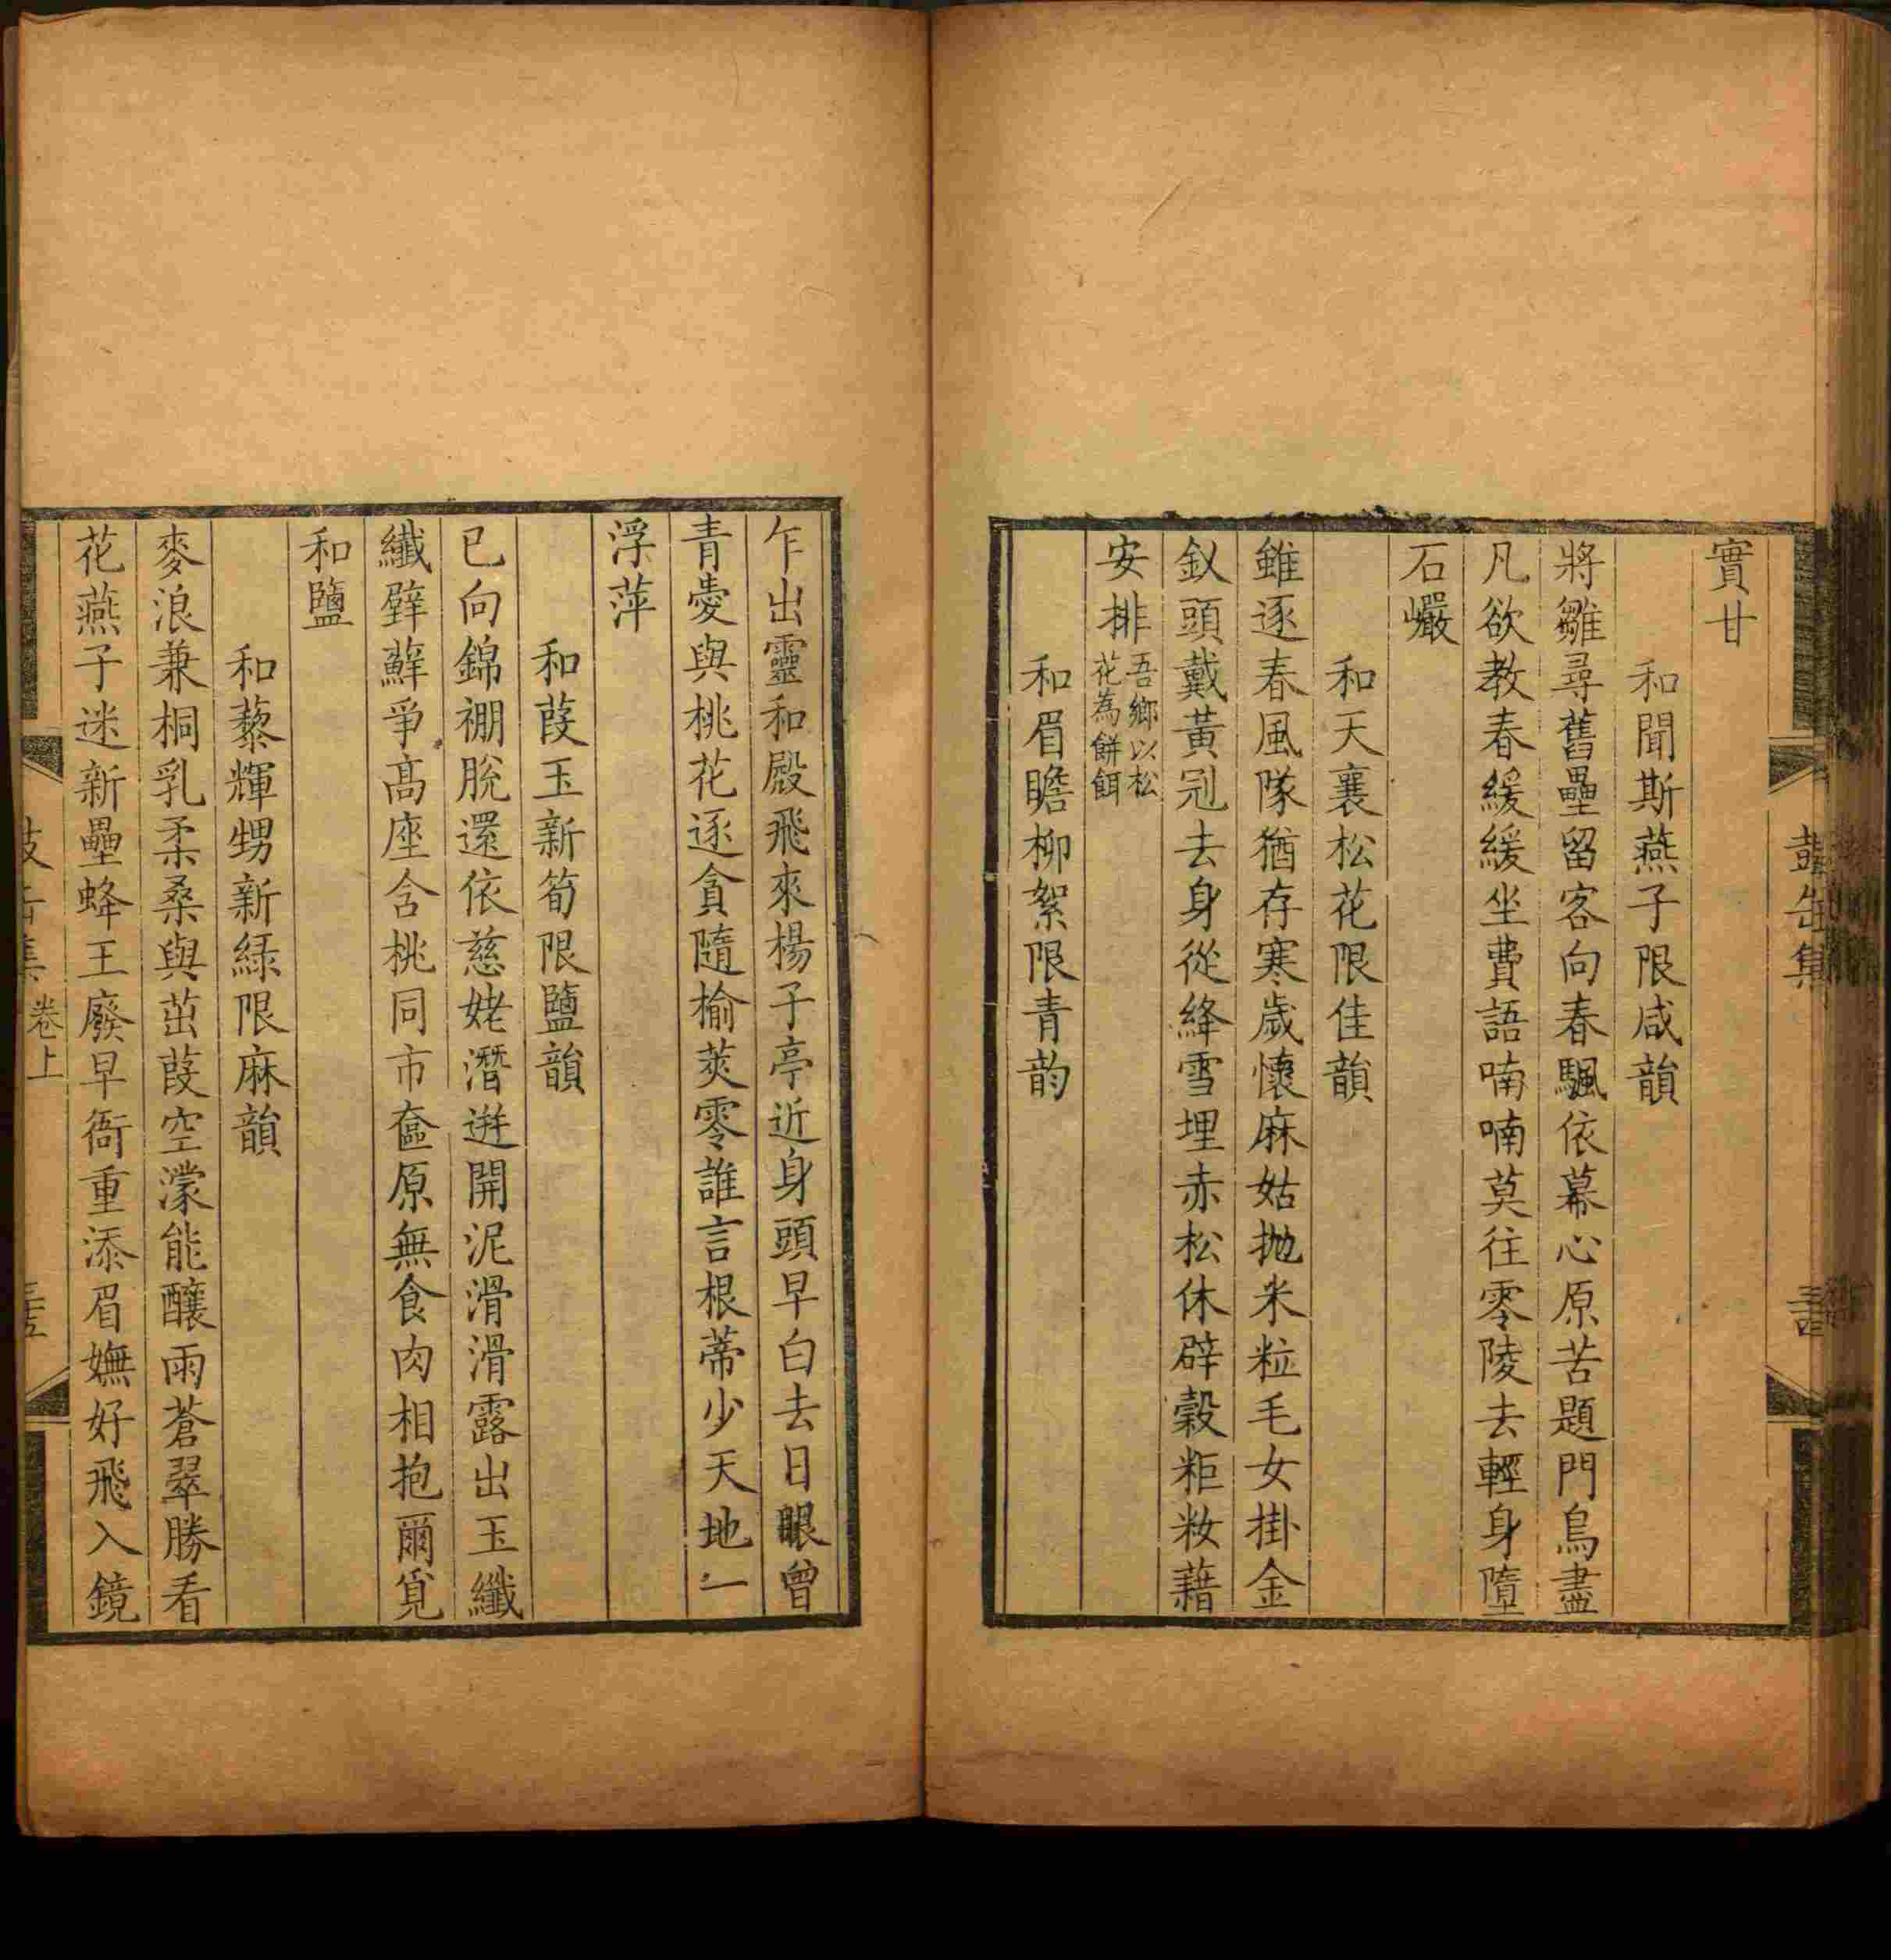 實甘
和聞斯燕子限咸韻
將雛尋舊壘留客向春颿依幕心原苦題門鳥盡
凡欲教春緩緩坐費語喃喃莫往零陵去輕身墮
石巗
和天襄松花限佳韻
雖逐春風隊猶存寒歲懷麻姑拋米粒毛女掛金
釵頭戴黃冠去身從絳雪埋赤松休辟穀粔籹藉
安排吾鄉以松花為餅餌
和眉瞻柳絮限青韵
乍出靈和殿飛來楊子亭近身頭早白去日眼曾
青愛與桃花逐貪隨榆莢零誰言根蒂少天地一
浮萍
和葭玉新筍限鹽韻
已向錦棚脫還依慈姥潛迸開泥滑滑露出玉纖
纖擘蘚爭高座含桃同市奩原無食肉相抱爾覓
和鹽
和藜輝甥新綠限麻韻
麥浪兼桐乳柔桑與茁葭空濛能釀雨蒼翠勝看
花燕子迷新壘蜂王廢早衙重添眉嫵好飛入鏡
卷上